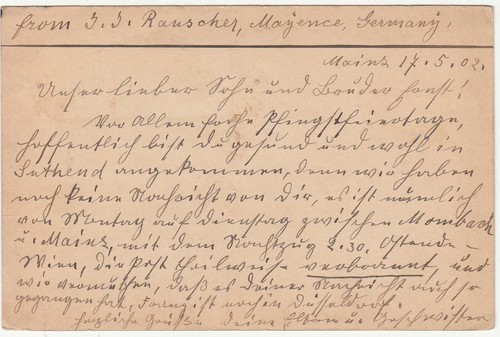 from J. J. Rauscher, Mayence, Germany.
Mainz 17. 5. 02.
Unser lieber Sohn und Bruder Ernst!
Vor Allem frohe Pfingstfeiertage,
hoffentlich bist du gesund und wohl in
Suthend angekommen, denn wir haben
noch keine Nachricht von dir, es ist nämlich
von Montag auf Dienstag zwischen Mombach
u. Mainz, mit dem Nachtzug 2.30. Ostende-
Wien, die Post theilweise verbrannt, und
wir vermuthen, daß es deiner Nachricht auch so
gegangen hat, Franz ist noch in Düsseldorf.
herzliche Grüsse deine Eltern u. Geschwister